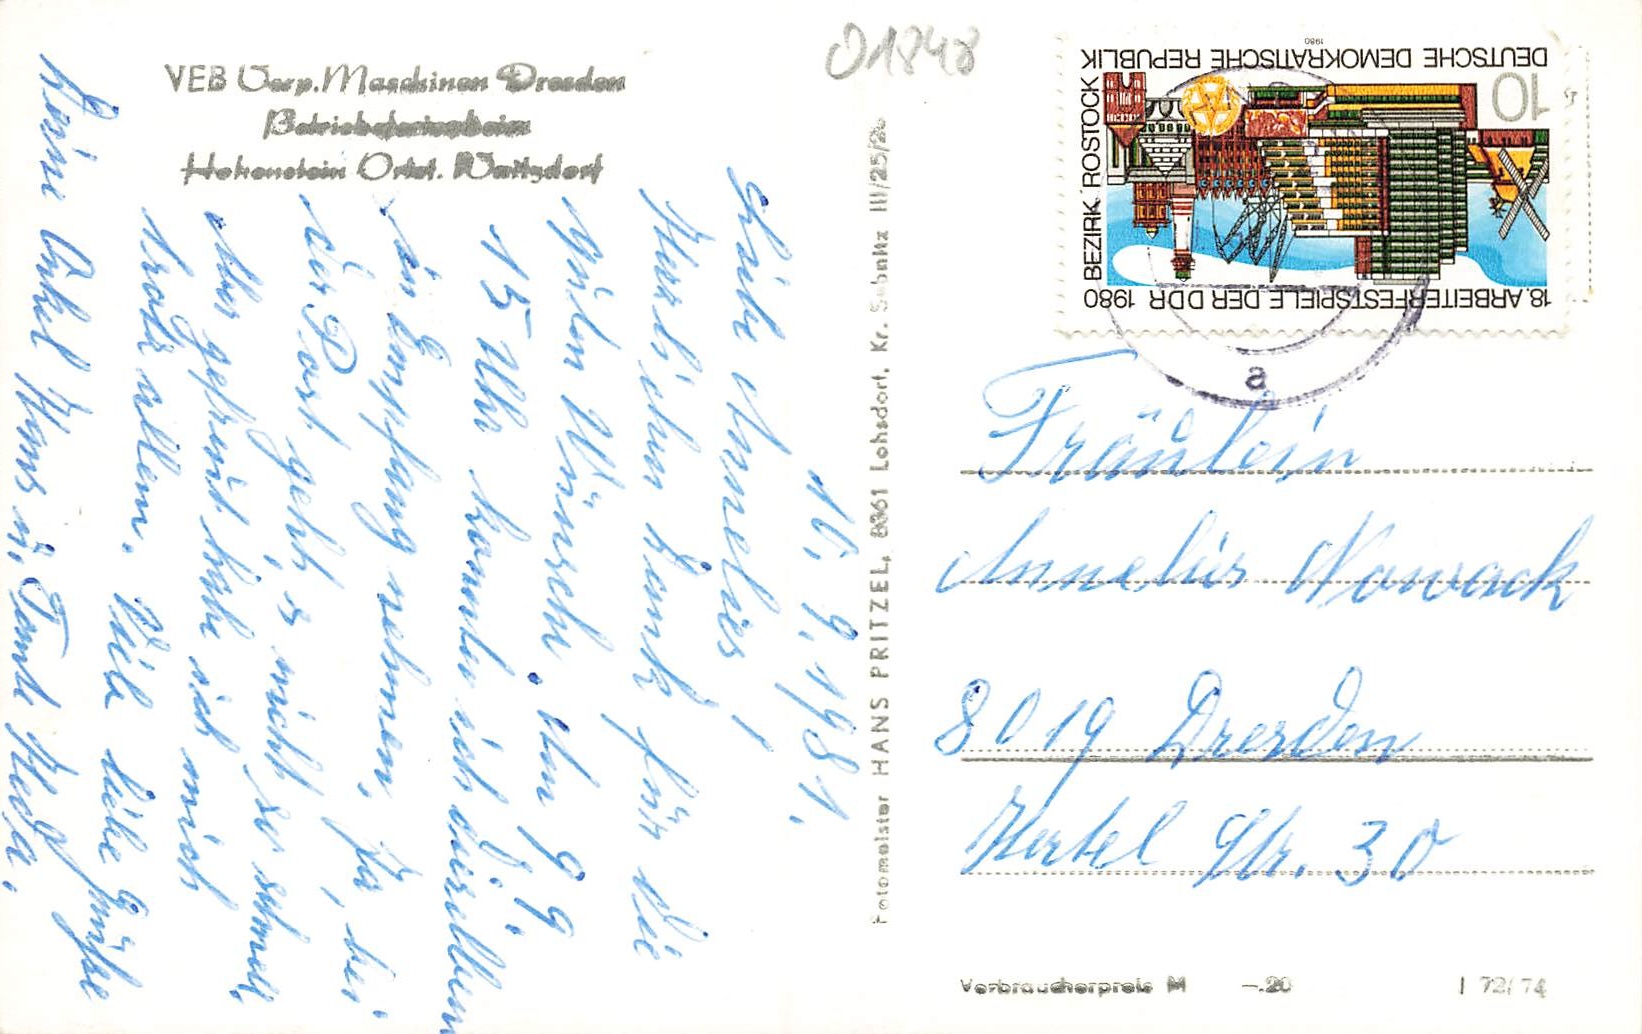 VEB Verp. Maschinen Dresden
Betriebsferienheim
Hohenstein Ortst. Waitzdorf
16.9.1981.
Liebe Annelies!
Herzlichen Dank für die
guten Wünsche. Am 9.9.
15 Uhr konnte ich dieselben
in Empfang nehmen. Ja, bei
der Post geht's nicht so schnell,
Aber gefreut habe ich mich
trotz allem. Viele liebe Grüße
Deine Onkel Hans u. Tante Heda.
Fotomeister HANS PRITZEL, 8361 Lohsdorf, Kr. Sebnitz III/25/26
01848
DEUTSCHE DEMOKRATISCHE REPUBLIK
1980
10
BEZIRK ROSTOCK
18. ARBEITERFESTSPIELE DER DDR 1980
a
Fräulein
Annelies Nowack
8019 Dresden
Hertel Str. 30
Verbraucherpreis M -.20
I 72/74